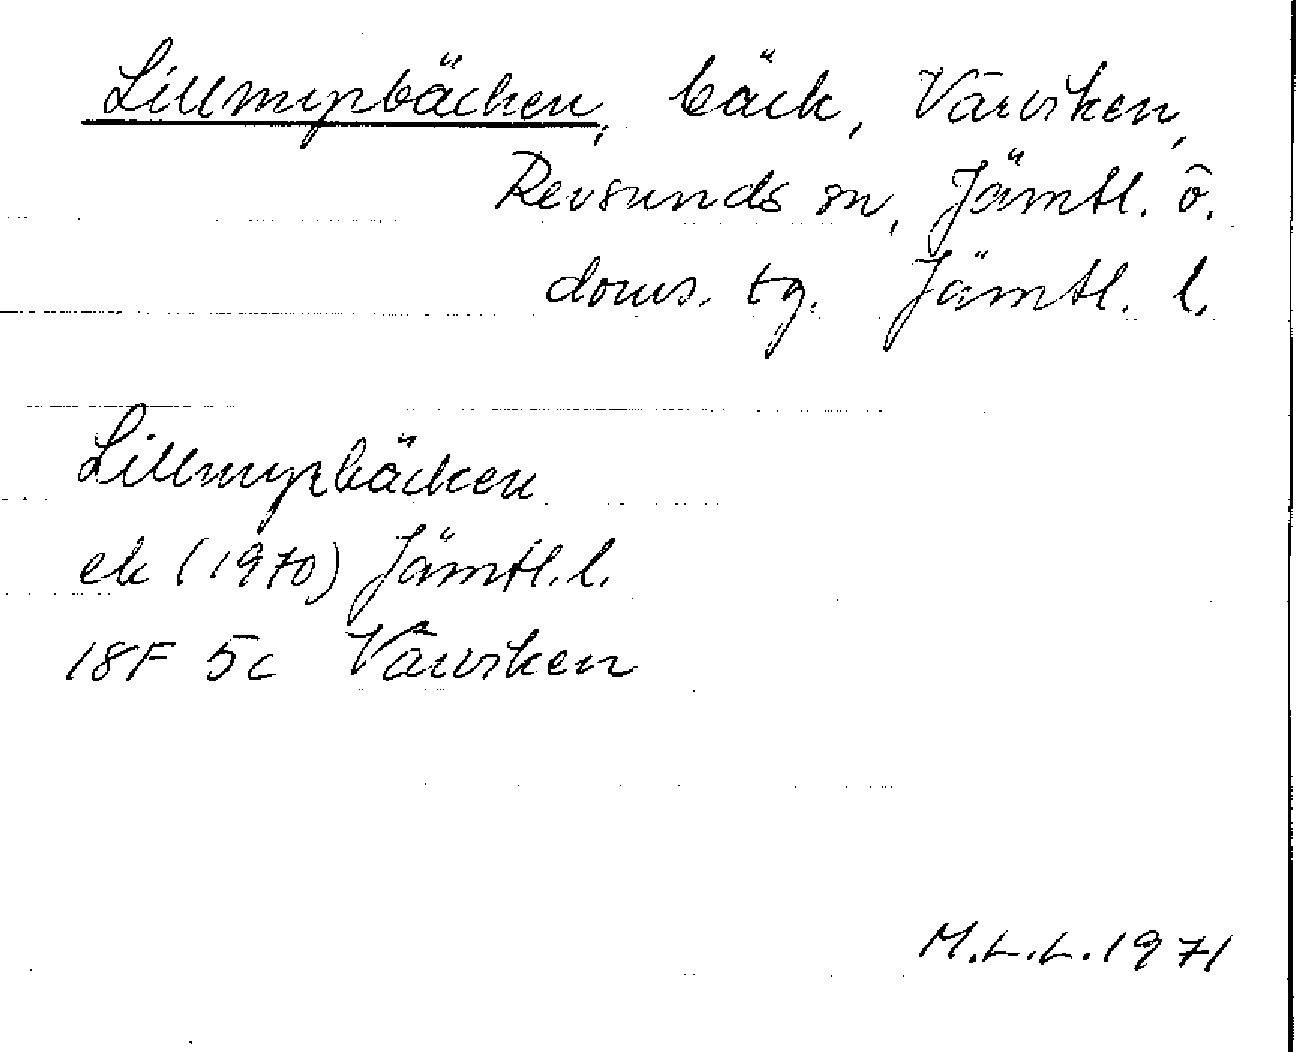 Lillmyrbäcken, bäck, Vårviken,
Revsunds sn, Jämtl. ö.
doms. tg. Jämtl. l.
Lillmyrbäcken
ek (1970) Jämtl. l.
18F 5c Vårviken
M.L.L. 1971